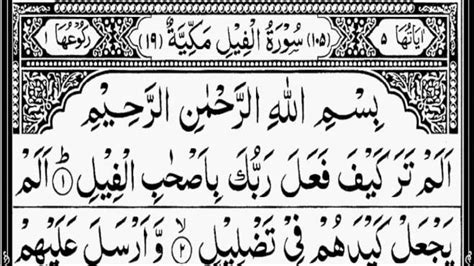 اٰيَاتُهَا ٥ (١٠٥) سُوْرَةُ الْفِيْلِ مَكِّيَّةٌ (١٩) رُكُوْعُهَا ١
بِسْمِ اللّٰهِ الرَّحْمٰنِ الرَّحِيْمِ
اَلَمْ تَرَ كَيْفَ فَعَلَ رَبُّكَ بِاَصْحٰبِ الْفِيْلِ ؕ‏﴿١﴾ اَلَمْ
يَجْعَلْ كَيْدَهُمْ فِيْ تَضْلِيْلٍ ۙ‏﴿٢﴾ وَّ اَرْسَلَ عَلَيْهِمْ